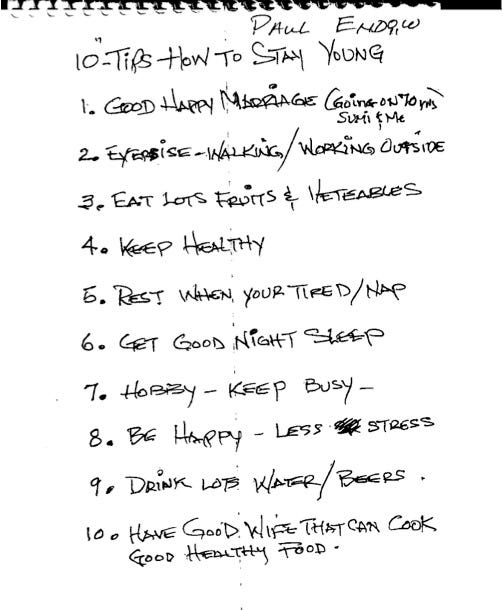 PAUL ENDOW
10-TIPS HOW TO STAY YOUNG
1. GOOD HAPPY MARRIAGE (GOING ON 70 yrs)
SUMI & ME
2. EXERSISE-WALKING/WORKING OUTSIDE
3. EAT LOTS FRUITS & VETEABLES
4. KEEP HEALTHY
5. REST WHEN YOUR TIRED/NAP
6. GET GOOD NIGHT SLEEP
7. HOBBY - KEEP BUSY -
8. BE HAPPY - LESS STRESS
9. DRINK LOTS WATER/BEERS.
10. HAVE GOOD WIFE THAT CAN COOK
GOOD HEALTHY FOOD.